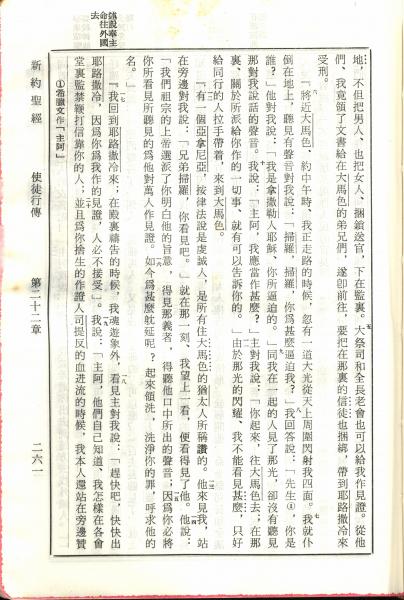 地，不但把男人、也把女人、捆鎖送官，下在監裏。五大祭司和全長老會也可以給我作見證。從他
們、我竟領了文書給在大馬色的弟兄們，遂卽前往，要把在那裏的信徒也捆綁，帶到耶路撒冷來
受刑。
『六將近大馬色、約中午時、我正走路的時候，忽有一道大光從天上周圍閃射我四面。七我就仆
倒在地上，聽見有聲音對我說：「掃羅，掃羅，你爲甚麼逼迫我？」八我回答說：「先生①，你是
誰？」他對我說：「我是拿撒勒人耶穌、你所逼迫的。」九同我在一起的人見了那光，卻沒有聽見
那對我說話的聲音。一〇我說：「主阿，我應當作甚麼？」主對我說：「你起來，往大馬色去；在那
裏、關於所派給你作的一切事、就有可以告訴你的。」一一由於那光的閃耀、我不能看見甚麼，只好
給同行的人拉手帶着，來到大馬色。
『一二有一個亞拿尼亞，按律法說是虔誠人，是所有住大馬色的猶太人所稱讚的。一三他來見我，站
在旁邊對我說：「兄弟掃羅，你看見吧。」就在那一刻、我望上一看，便看得見了他。一四他說：
「我們祖宗的上帝選派了你明白他的旨意、得見那義者，得聽他口中所出的聲音；一五因爲你必將
你所看見所聽見的爲他對萬人作見證。一六如今爲甚麼躭延呢？起來領洗，洗淨你的罪，呼求他的
名。」
『一七我回到耶路撒冷來；在殿裏禱吿的時候，我魂遊象外，一八看見主對我說：「趕快吧，快快出
耶路撒冷，因爲你爲我作的見證，人必不接受」。一九我說：「主阿，他們自己知道、我怎樣在各會
堂裏監禁鞭打信靠你的人；二〇並且爲你捨生的作證人司提反的血迸流的時候，我本人還站在旁邊贊
①希臘文作「主阿」
述說奉主
命往外國
去
新約聖經　使徒行傳　第二十二章　二六一